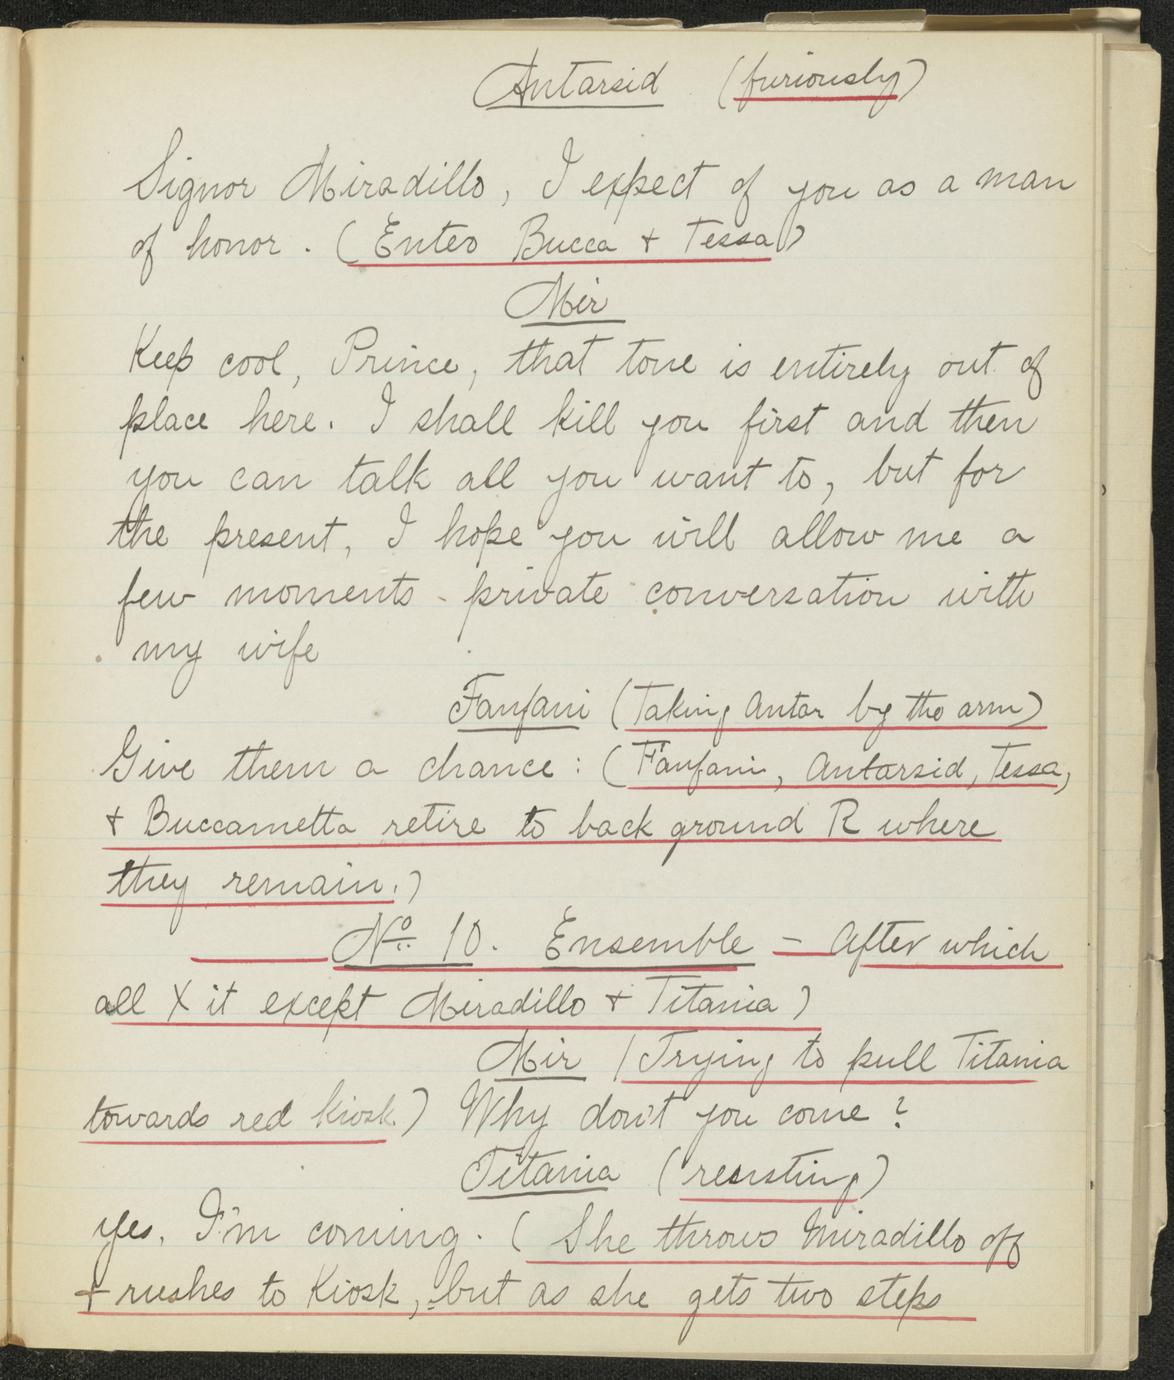 Antarsid (furiously)
Signor Miradillo, I expect of you as a man
of honor. (Enter Bucca + Tessa)
Mir
Keep cool, Prince, that tone is entirely out of
place here. I shall kill you first and then
you can talk all you want to, but for
the present, I hope you will allow me a
few moments private conversation with
my wife
Fanfani (Taking Antar by the arm)
Give them a chance: (Fanfani, Antarsid, Tessa,
+ Buccametta retire to back ground R where
they remain.)
No 10. Ensemble - After which
all X it except Miradillo + Titania)
Mir (Trying to pull Titania
towards red Kiosk) Why don't you come?
Titania (resisting)
yes, I'm coming. (She throws Miradillo off
+ rushes to Kiosk, but as she gets two steps